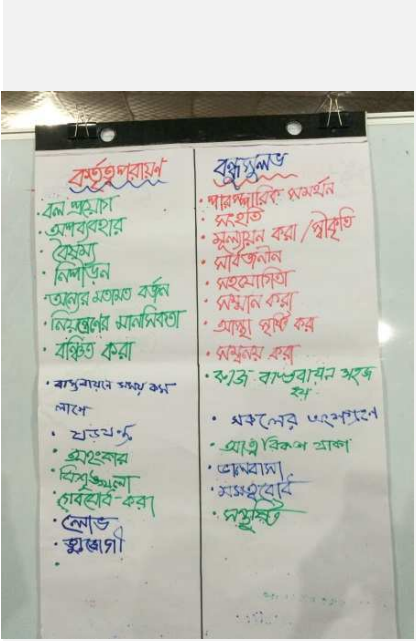 কর্তৃত্বপরায়ণ
· বল প্রয়োগ
· অপব্যবহার
· বৈষম্য
· নিপীড়ন
· অন্যের মতামত বর্জন
· নিয়ন্ত্রণের মানসিকতা
· বঞ্চিত করা
· বাস্তবায়নে সময় কম
লাগে
· ষড়যন্ত্র
· অহংকার
· বিশৃঙ্খলা
· করা
· লোভ
বন্ধুসুলভ
· পারস্পারিক সমর্থন
· সংহতি
· মূল্যায়ন করা / স্বীকৃতি
· সার্বজনীন
· সহযোগিতা
· সম্মান করা
· আস্থা সৃষ্টি করা
· সমন্বয় করা
· কাজ বাস্তবায়ন সহজ
হয়
· সকলের অংশগ্রহণ
· আত্নবিকাশ থাকা
· ভালবাসা
· মমত্ববোধ
· সন্তুষ্টি